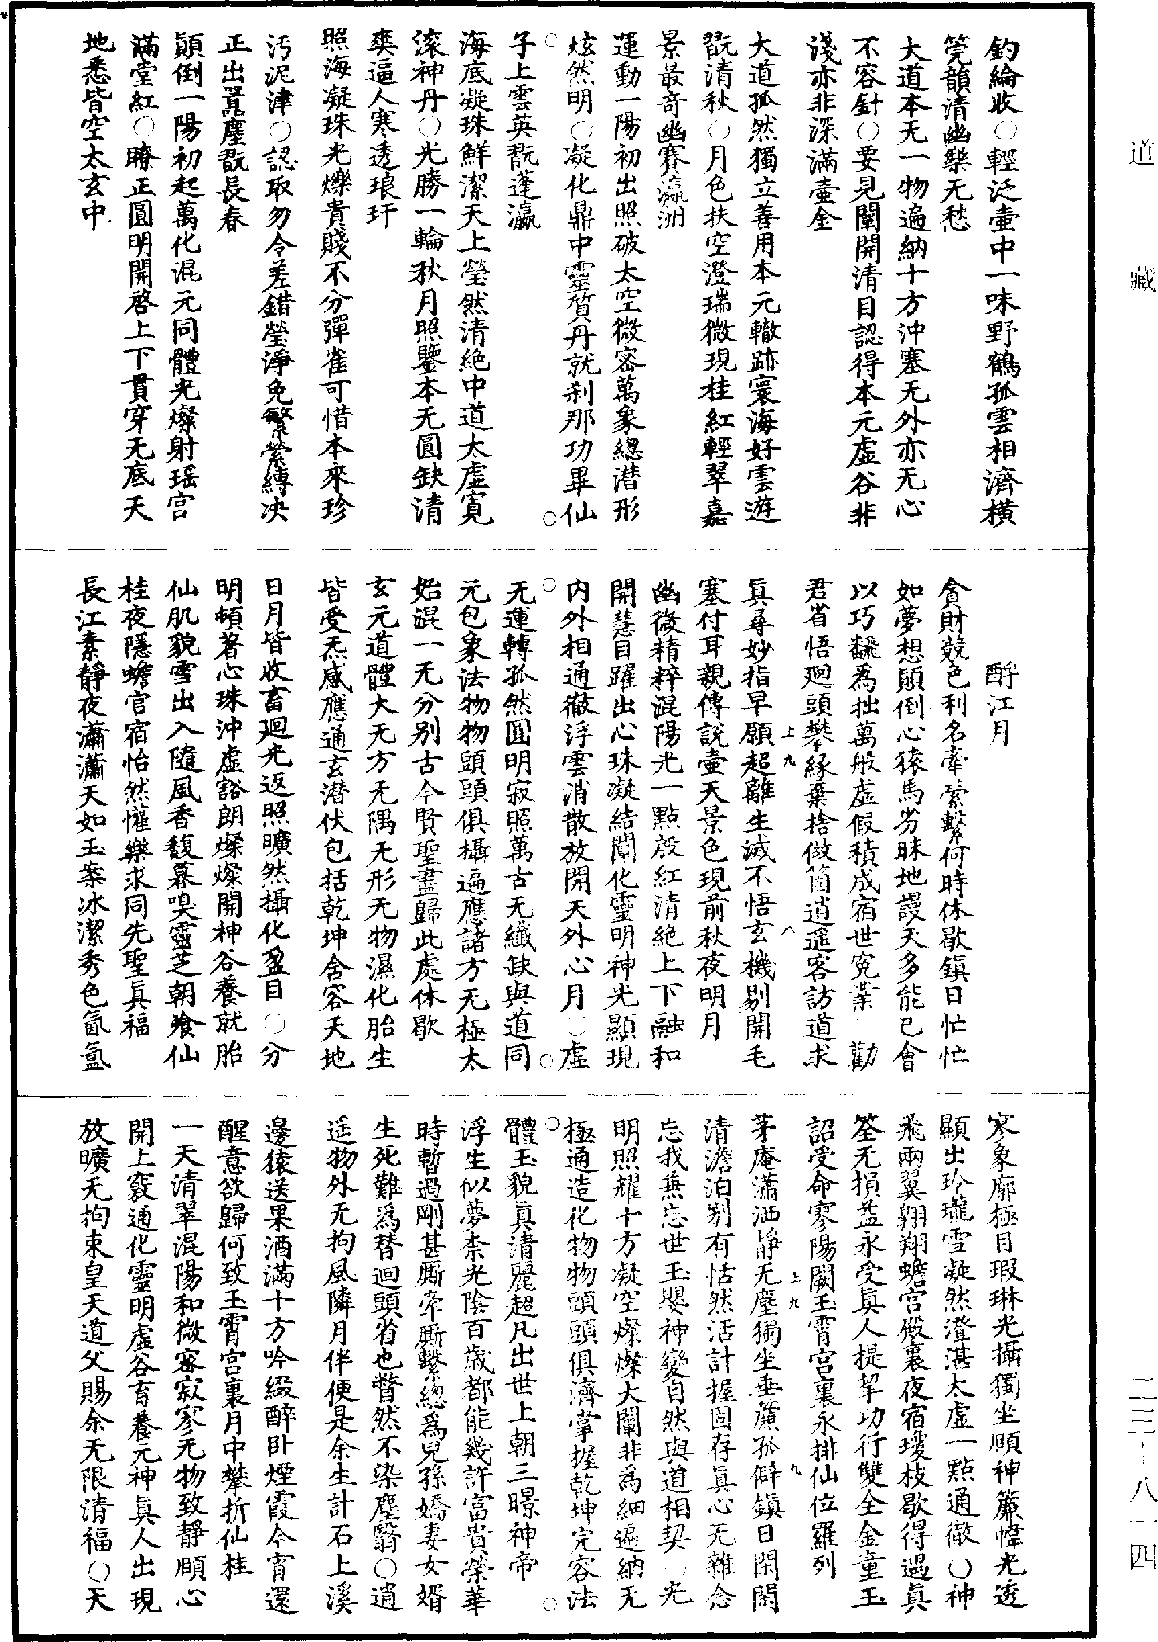 道藏
釣綸收○輕泛壷中一味野鶴孤雲相濟橫
筦韻清幽樂无愁
大道本无一物遍納十方沖塞无外亦无心
不容針○要見闡開清目認得本元虛谷非
淺亦非深滿壷金
大道孤然獨立善用本元轍跡寰海好雲遊
翫清秋○月色扶空澄瑞微現桂紅輕翠嘉
景最奇幽賽瀛洲
運動一陽初出照破太空微密萬象緫潜形
炫然明○凝化鼎中靈質丹就刹那功畢仙
子上雲英翫蓬瀛
海底凝珠鮮潔天上瑩然清絶中道太虛寛
滚神丹○光勝一輪秋月照鑒本无圓缺清
爽逼人寒透琅玕
照海凝珠光爍貴賤不分彈雀可惜本來珍
汚泥津○認取勿令差錯瑩淨免繁縈縛决
正出嚣塵翫長春
顛倒一陽初起萬化混元同體光燦射瑶宫
滿堂紅○瞭正圓明開啓上下貫穿无底天
地悉皆空太玄中
酹江月
貪財競色利名牽縈繫何時休歇鎮日忙忙
如夢想顛倒心猿馬劣昧地謾天多能已會
以巧翻為拙萬般虛假積成宿世寃業○勸
君省悟廻頭攀緣棄捨做箇逍遥客訪道求
真尋妙指早願超離生滅不悟玄機剔開毛
塞付耳親傳說壷天景色現前秋夜明月
幽微精粹混陽光一點殷紅清絶上下融和
開慧目躍出心珠凝結闡化靈明神光顯現
内外相通徹浮雲消散放開天外心月○虛
无運轉孤然圓明寂照萬古无纖缺與道同
元包象法物物頭頭俱攝遍應諸方无極太
始混一无分别古今賢聖盡歸此處休歇
玄元道體大无方无隅无形无物濕化胎生
皆受炁感應通玄潜伏包括乾坤含容天地
日月皆收畜廻光返照曠然攝化盈目○分
明頓著心珠沖虛豁朗燦燦開神谷養就胎
仙肌貌雪出入隨風香馥暮嗅靈芝朝飡仙
桂夜隱蟾宫宿怡然懽樂求同先聖真福
長江素靜夜瀟瀟天如玉案冰潔秀色氤氲
寥象廓極目瑕琳光攝獨坐頤神簾幃光透
顯出玲瓏雪凝然澄湛太虛一點通徹○神
飛兩翼翱翔蟾宫殿裏夜宿瓊枝歇得遇真
筌无損益永受真人提挈功行雙全金童玉
詔受命寥陽闕玉霄宫裏永排仙位羅列
茅庵瀟洒靜无塵獨坐垂簾孤僻鎮日閑閑
清澹泊别有恬然活計握固存真心无雜念
忘我兼忘世玉嬰神變自然與道相契○光
明照耀十方凝空燦燦大闡非為細遍納无
極通造化物物頭頭俱濟掌握乾坤完容法
體玉貌真清麗超凡出世上朝三㬌神帝
浮生似夢柰光陰百歲都能幾許富貴榮華
時暫過剛甚厮牽厮繫緫為兒孫嬌妻女婿
生死難為替迴頭省也瞥然不染塵翳○逍
遥物外无拘風隣月伴便是余生計石上溪
邊猿送果酒滿十方吟綴醉卧煙霞今宵還
醒意欲歸何致玉霄宫裏月中攀折仙桂
一天清翠混陽和微密寂寥无物致靜頤心
開上竅通化靈明虛谷畜養元神真人出現
放曠无拘束皇天道父賜余无限清福○天
二三-八一四